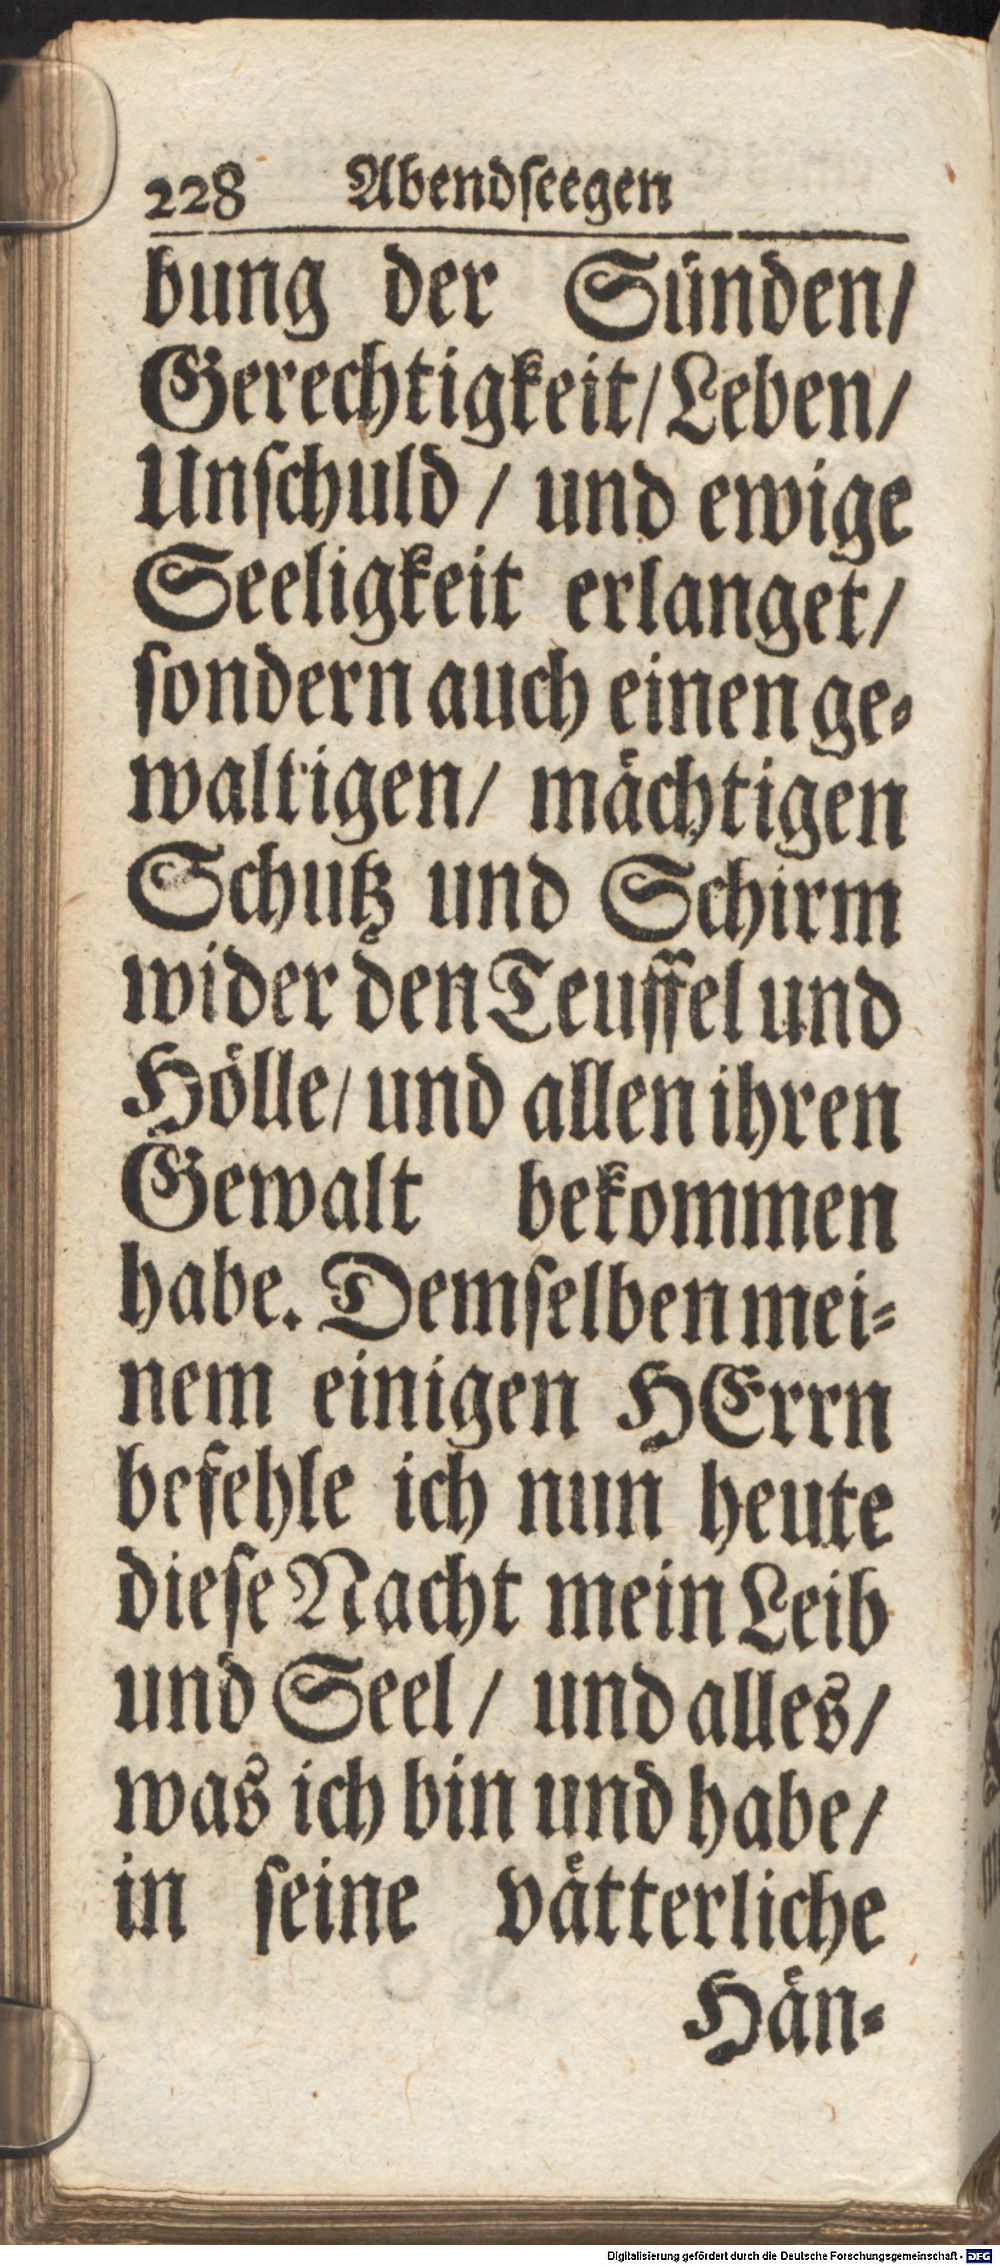 228 Abendseegen
bung der Sünden/
Gerechtigkeit/ Leben/
Unschuld / und ewige
Seeligkeit erlanget/
sondern auch einen ge-
waltigen/ mächtigen
Schutz und Schirm
wider den Teuffel und
Hölle/ und allen ihren
Gewalt bekommen
habe. Demselben mei-
nem einigen HErrn
befehle ich nun heute
diese Nacht mein Leib
und Seel / und alles/
was ich bin und habe/
in seine vätterliche
Hän-
Digitalisierung gefördert durch die Deutsche Forschungsgemeinschaft - DFG